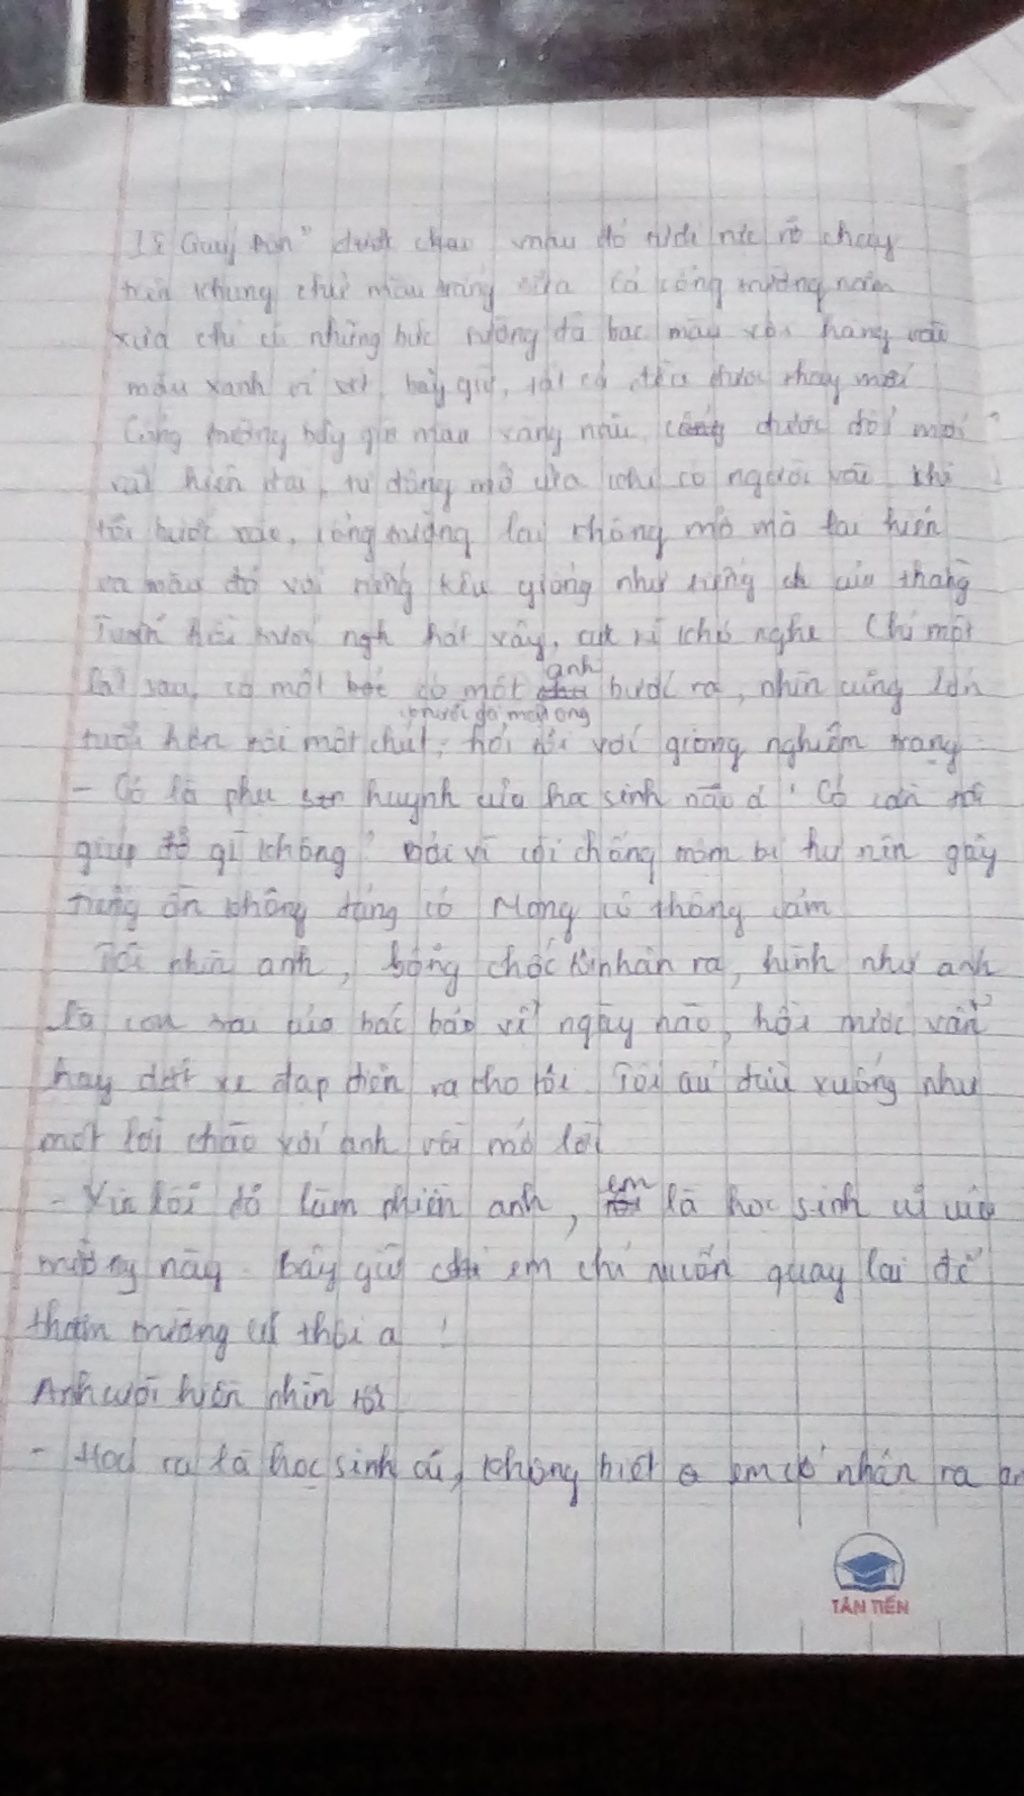 Lê Quý Đôn" được chạy màu đỏ tươi rực rỡ chạy
trên khung chữ màu trắng sữa cả cổng trường năm
xưa chỉ có những bức tường đã bạc màu với hàng rào
màu xanh rỉ sét, bây giờ, tất cả đều được thay mới
Cổng trường bây giờ màu vàng nâu, cũng được đổi mới
rất hiện đại, tự động mở cửa khi có người vào khi
tôi bước vào, cổng trường lại không mở mà lại hiện
ra màu đỏ với tiếng kêu giống như tiếng của thằng
Tuấn hồi trước hát vậy, cực kì khó nghe Chỉ một
lát sau, có một có một anh bước ra, nhìn cũng lớn
tuổi hơn tôi một chút, hỏi tôi với giọng nghiêm trang
- Cô là phụ huynh của học sinh nào ạ? Cô cần tôi
giúp đỡ gì không? Bởi vì cái chống trộm bị hư nên gây
tiếng ồn không đáng có Mong cô thông cảm
Tôi nhìn anh, bỗng chốc nhận ra, hình như anh
là con trai của bác bảo vệ ngày nào, hồi trước vẫn
hay dắt xe đạp điện ra cho tôi. Tôi cúi đầu xuống như
một lời chào với anh rồi mở lời
- Xin lỗi đã làm phiền anh, em là học sinh cũ của
trường này bây giờ em chỉ muốn quay lại để
thăm trường cũ thôi ạ!
Anh cười hiền nhìn tôi
- Hoá ra là học sinh cũ, không biết em có nhận ra an
TÂN TIẾN